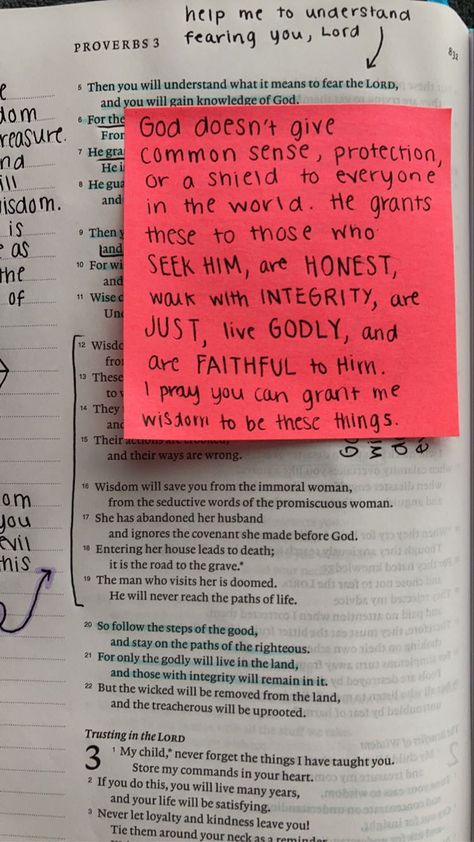 help me to understand
fearing you, Lord
PROVERBS 3
e
dom
reasure.
nd
ill
isdom.
is
e as
the
of
om
you
evil
his
5 Then you will understand what it means to fear the LORD,
and you will gain knowledge of God.
6 For the
From
7 He gra
He i
8 He gua
and
9 Then y
and
10 For wi
and
11 Wise c
Und
12 Wisdo
from
13 These
to
14 They
and
15 Their actions are crooked,
and their ways are wrong.
God doesn't give
common sense, protection,
or a shield to everyone
in the world. He grants
these to those who
SEEK HIM, are HONEST,
walk with INTEGRITY, are
JUST, live GODLY, and
are FAITHFUL to Him.
I pray you can grant me
wisdom to be these things.
16 Wisdom will save you from the immoral woman,
from the seductive words of the promiscuous woman.
17 She has abandoned her husband
and ignores the covenant she made before God.
18 Entering her house leads to death;
it is the road to the grave.*
19 The man who visits her is doomed.
He will never reach the paths of life.
20 So follow the steps of the good,
and stay on the paths of the righteous.
21 For only the godly will live in the land,
and those with integrity will remain in it.
22 But the wicked will be removed from the land,
and the treacherous will be uprooted.
Trusting in the LORD
3 1 My child,* never forget the things I have taught you.
Store my commands in your heart.
2 If you do this, you will live many years,
and your life will be satisfying.
3 Never let loyalty and kindness leave you!
Tie them around your neck as a reminder.